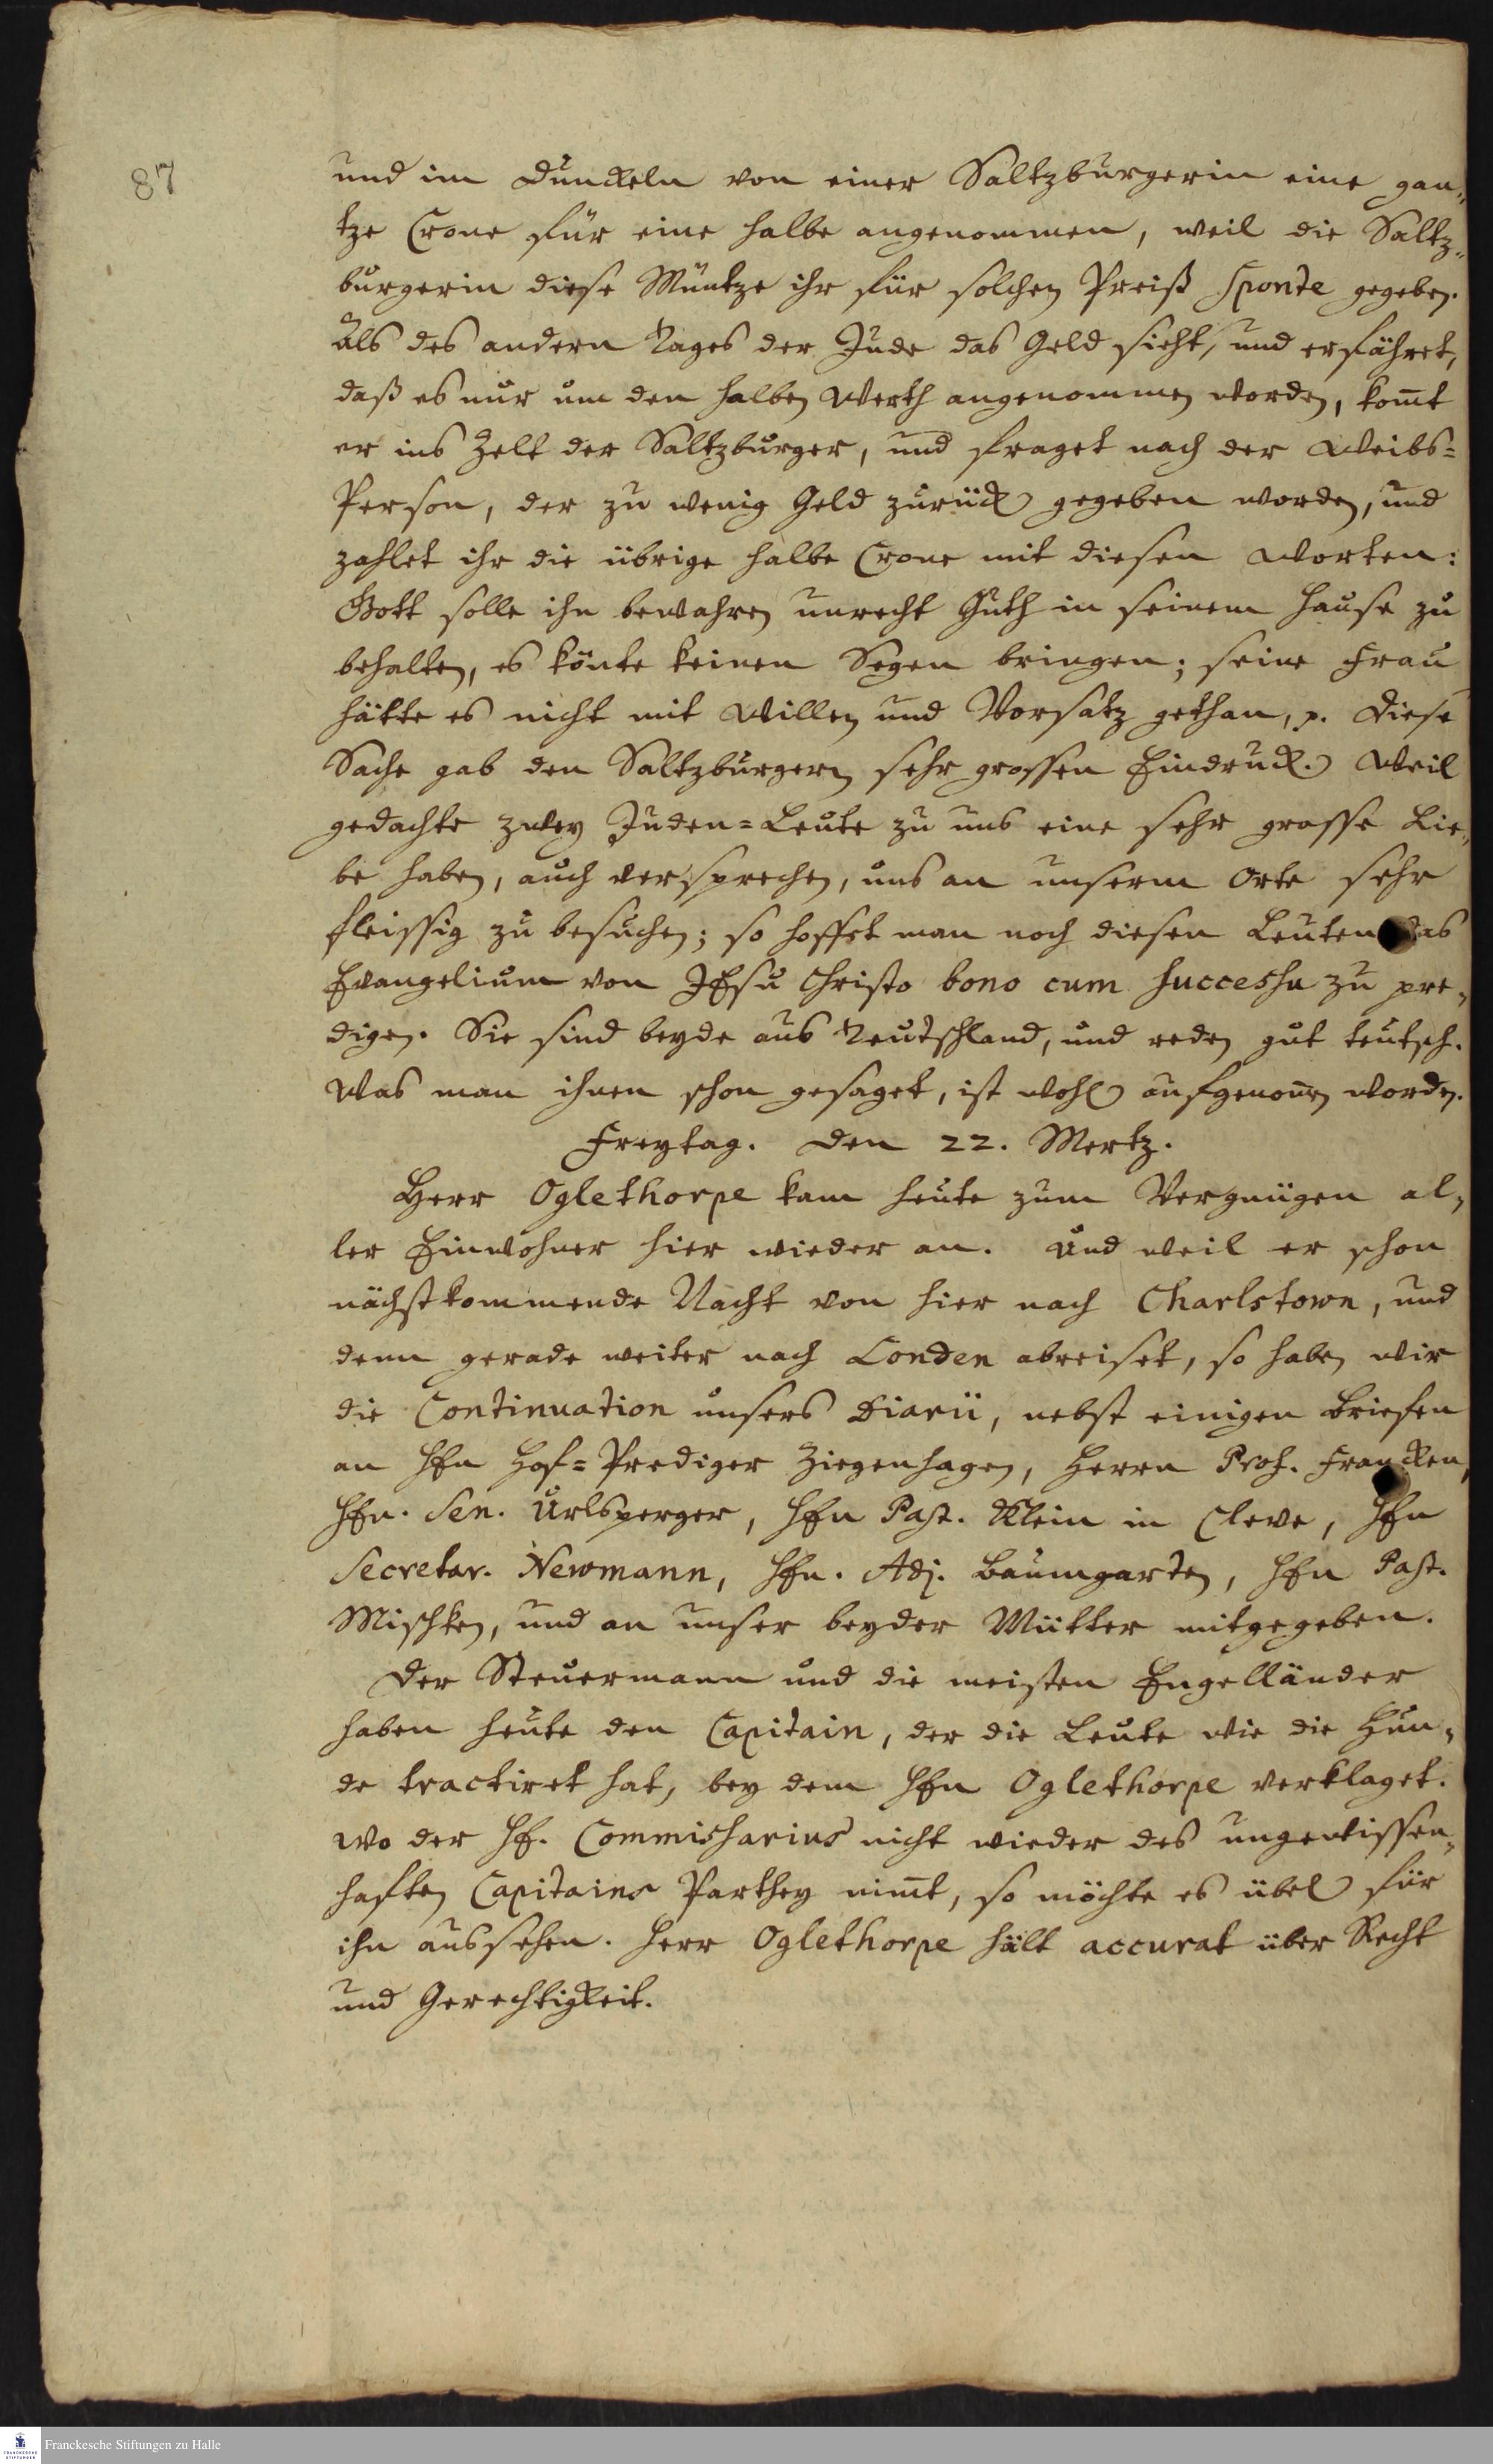 87
und im Dunckeln von einer Saltzburgerin eine gan-
tze Crone für eine halbe angenommen, weil die Saltz-
burgerin diese Müntze ihr für solchen Preiß sponte gegeben.
Als des andern Tages der Jude das Geld sieht, und erfähret,
daß es nur um den halben Werth angenommen worden, kom̅t
er ins Zelt der Saltzburger, und fraget nach der Weibs=
Person, der zu wenig Geld zurück gegeben worden, und
zahlet ihr die übrige halbe Crone mit diesen Worten:
Gott solle ihn bewahren unrecht Guth in seinem Hause zu
behalten, es könte keinen Segen bringen; seine Frau
hätte es nicht mit Willen und Vorsatz gethan, p. Diese
Sache gab den Saltzburgern sehr grossen Eindruck. Weil
gedachte zwey Juden=Leute zu uns eine sehr grosse Lie-
be haben, auch versprechen, uns an unserm Orte sehr
fleissig zu besuchen; so hoffet man noch diesen Leuten das
Evangelium von JEsu Christo bono cum successu zu pre-
digen. Sie sind beyde aus Teutschland, und reden gut teutsch.
Was man ihnen schon gesaget, ist wohl aufgenom̅en worden.
Freytag. Den 22. Mertz.
Herr Oglethorpe kam heute zum Vergnügen al-
ler Einwohner hier wieder an. Und weil er schon
nächstkommende Nacht von hier nach Charlstown, und
denn gerade weiter nach Londen abreiset, so haben wir
die Continuation unsers Diarii, nebst einigen Briefen
an HEn Hof=Prediger Ziegenhagen, Herrn Prof. Francken,
HEn. Sen. Urlsperger, HEn Past. Klein in Cleve, HEn
Secretar. Newmann, HEn. Adj. Baumgarten, HEn Past.
Mischken, und an unser beyder Mütter mitgegeben.
Der Steuermann und die meisten Engelländer
haben heute den Capitain, der die Leute wie die Hun-
de tractiret hat, bey dem HEn Oglethorpe verklaget.
Wo der HE. Commissarius nicht wieder des ungewissen-
haften Capitains Parthey nim̅t, so möchte es übel für
ihn aussehen. Herr Oglethorpe hält accurat über Recht
und Gerechtigkeit.
Franckesche Stiftungen zu Halle